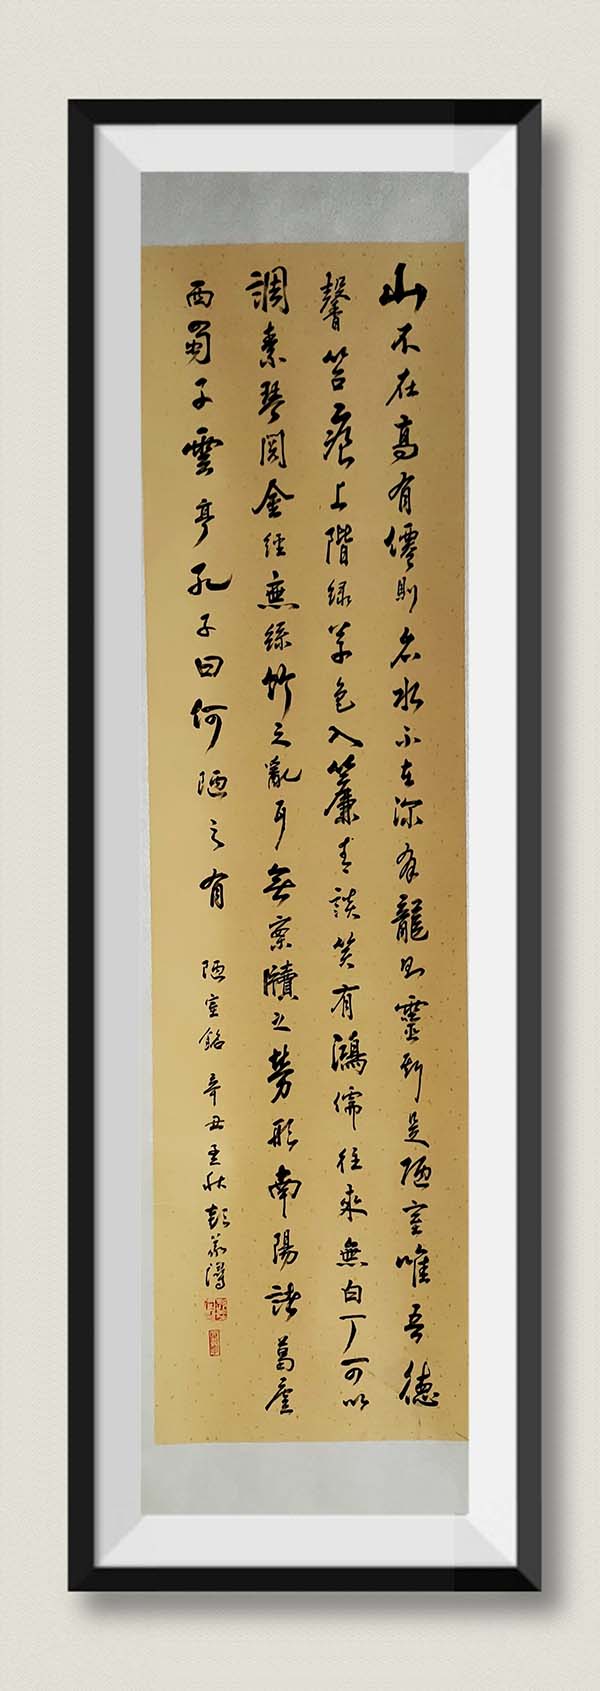 山不在高有僊則名水不在深有龍則靈斯是陋室唯吾德
馨苔痕上階緑草色入簾青談笑有鴻儒往來無白丁可以
調素琴閲金經無絲竹之亂耳無案牘之勞形南陽諸葛廬
西蜀子雲亭孔子曰何陋之有 陋室銘 辛丑孟秋彭